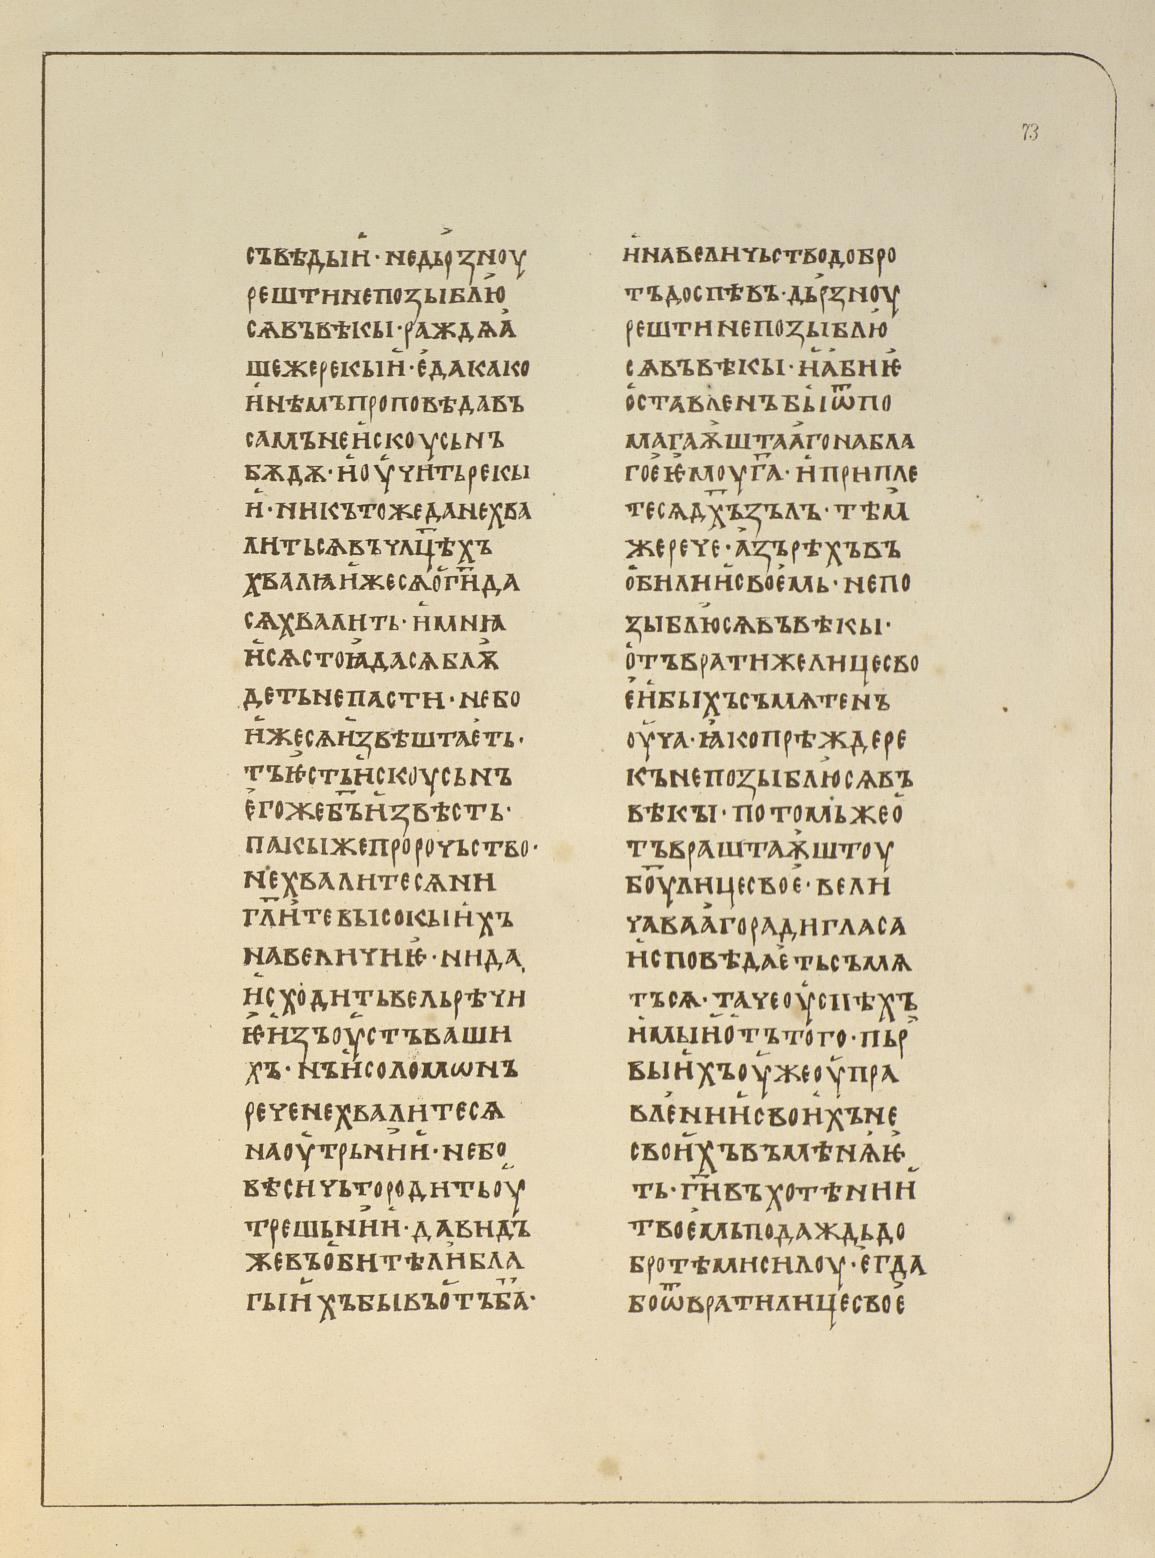 73
съвѣдыи҆· недьрзноу
рештинепозыблю҆
сѧвъвѣкы·раждѧа҆
шежерекыи҆·е҆дакако
и҆нѣмъпроповѣдавъ
самънеи҆скоусьнъ
бѫдѫ·и҆оу҆чи҆тьрекы
и҆·никътожеданехва
литьсѧвъчлц҃ѣхъ
хвалꙗи҆жесѧо҆г҃и҆да
сѧхвалить·и҆мнꙗ
и҆сѧстоꙗ҆дасѧблѫ҆
детьнепасти·небо
и҆жесѧи҆звѣштае҆ть·
тъѥ҆стьи҆скоусьнъ
е҆гожеб҃ъи҆звѣсть·
пакыжепророчьство·
нехвалитесѧни
гл҃и҆тевысокыи҆хъ
навеличиѥ҆·нида
и҆сходитьвельрѣчи
ѥ҆и҆зъоу҆стъваши
хъ·нъи҆соломѡнъ
реченехвалитесѧ
наоу҆трьни҆и҆·небо
вѣсичьтородитьоу҆
трешьни҆и҆·давидъ
жевъо҆битѣли҆бла
гыи҆хъбывъо҆тъб҃а·
и҆навеличьстводобро
тъдоспѣвъ·дьрзноу
рештинепозыблю҆
сѧвъвѣкы·и҆а҆биѥ҆
о҆ставленъбыѿпо
магаѭ҆штаа҆гонабла
гое҆ѥ҆моуг҃а·и҆припле
тесѧдх҃ъзълъ·тѣм
жерече·а҆зърѣхъвъ
о҆билии҆свое҆мь·непо
зыблю҆сѧвъвѣкы·
о҆тъвратижелицесво
е҆и҆быхъсъмѧтенъ
оу҆ча·ꙗ҆копрѣждере
къпепозыблю҆сѧвъ
вѣкы·потомьжео҆
тъвраштаѭ҆штоу
бо҃улицесвое҆·вели
чаваа҆горадигласа
и҆сповѣдае҆тьсъмѧ
тъсѧ·тачеоу҆спѣхъ
и҆мыи҆о҆тътого·пьр
выи҆хъоу҆жеоу҆пра
вле҆нии҆свои҆хъне
свои҆хъвъмѣнѧѥ҆
ть·г҃и҆въхотѣнии҆
твое҆мьподаждьдо
бротѣмисилоу·е҆гда
боѿвратилицесвое҆